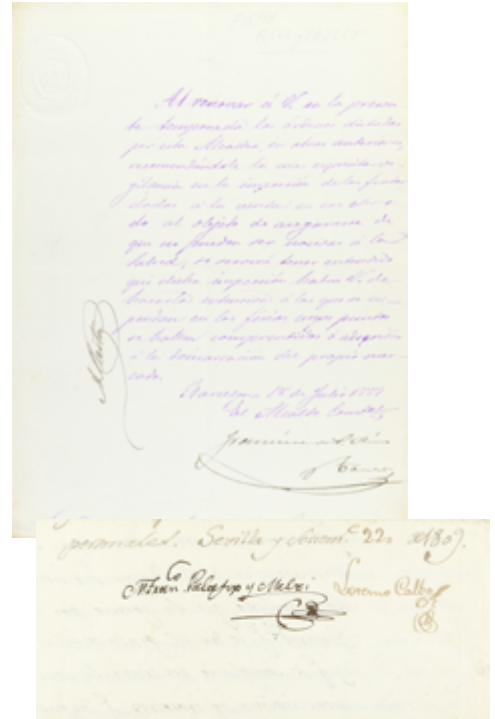 Al renovar á V. en la presen
te temporada las órdenes dictadas
por esta Alcaldía en otras anteriores,
recomendándole la mas esquisita vi-
gilancia en la inspección de las frutas
dadas á la venta en ese
al objeto de asegurarse de
que no puedan ser nocivas á la
salud, se servirá tener entendido
que dicha inspección habrá V. de
hacerla estensiva á las que se es-
pendan en las ferias cuyos puestos
se hallen comprendidos ó adquiridos
á la demarcación del propio mer-
cado.
Barcelona 18 de Julio 1877
El Alcalde Constl
personales. Sevilla y 22 de 1809.
Franco Palafox y Melzi Lorenzo Calbo